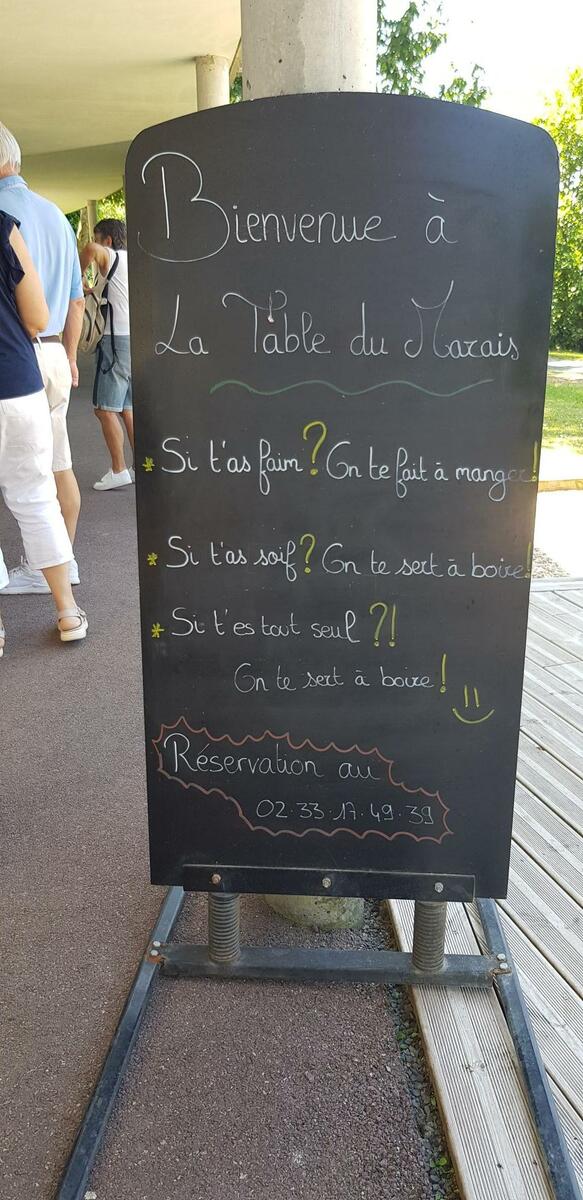 Bienvenue à
La Table du Marais
* Si t'as faim ? On te fait à manger !
* Si t'as soif ? On te sert à boire !
* Si t'es tout seul ?!
On te sert à boire !
Réservation au
02.33.17.49.39